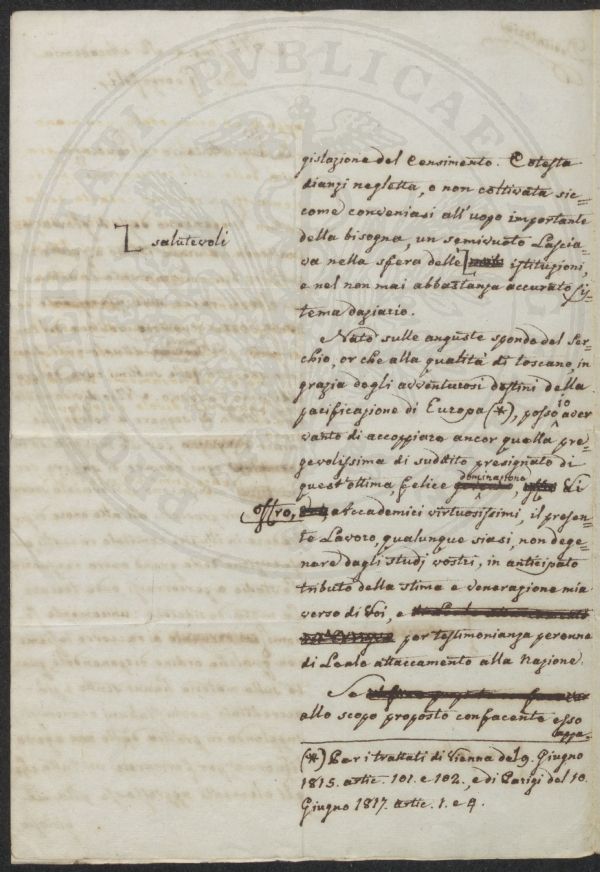 salutevoli
gislazione del Censimento. Cotesta
dianzi negletta, o non coltivata sic=
come conveniasi all'uopo importante
della bisogna, un semivuoto Lascia=
va nella sfera delle istituzioni,
e nel non mai abbastanza accurato si=
stema daziario.
Nato sulle anguste sponde del Ser=
chio, or che alla qualità di toscano, in
grazia degli avventurosi destini della
pacificazione di Europa (*), posso io aver
vanto di accoppiare ancor quella pre=
gevolissima di suddito presignato di
quest'ottima, felice dominazione, Vi
offro, Accademici virtuosissimi, il presen=
te Lavoro, qualunque siasi, non dege=
nere dagli studj vostri, in anticipato
tributo della stima e venerazione mia
verso di Voi, e
per testimonianza perenne
di Leale attaccamento alla Nazione.
Se
allo scopo proposto confacente esso
appa=
(*) Per i trattati di Vienna del 9. Giugno
1815. artic. 101. e 102., e di Parigi del 10.
Giugno 1817. artic. 1. e 4.